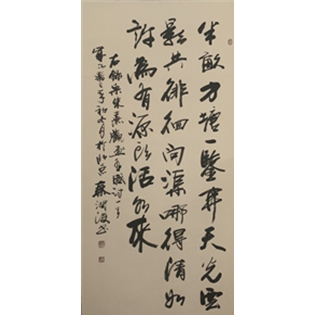 半畝方塘一鑒开天光雲
影共徘徊問渠哪得清如
許為有源头活水來
右錄宋朱熹觀書有感詩一首
年初 月於北京